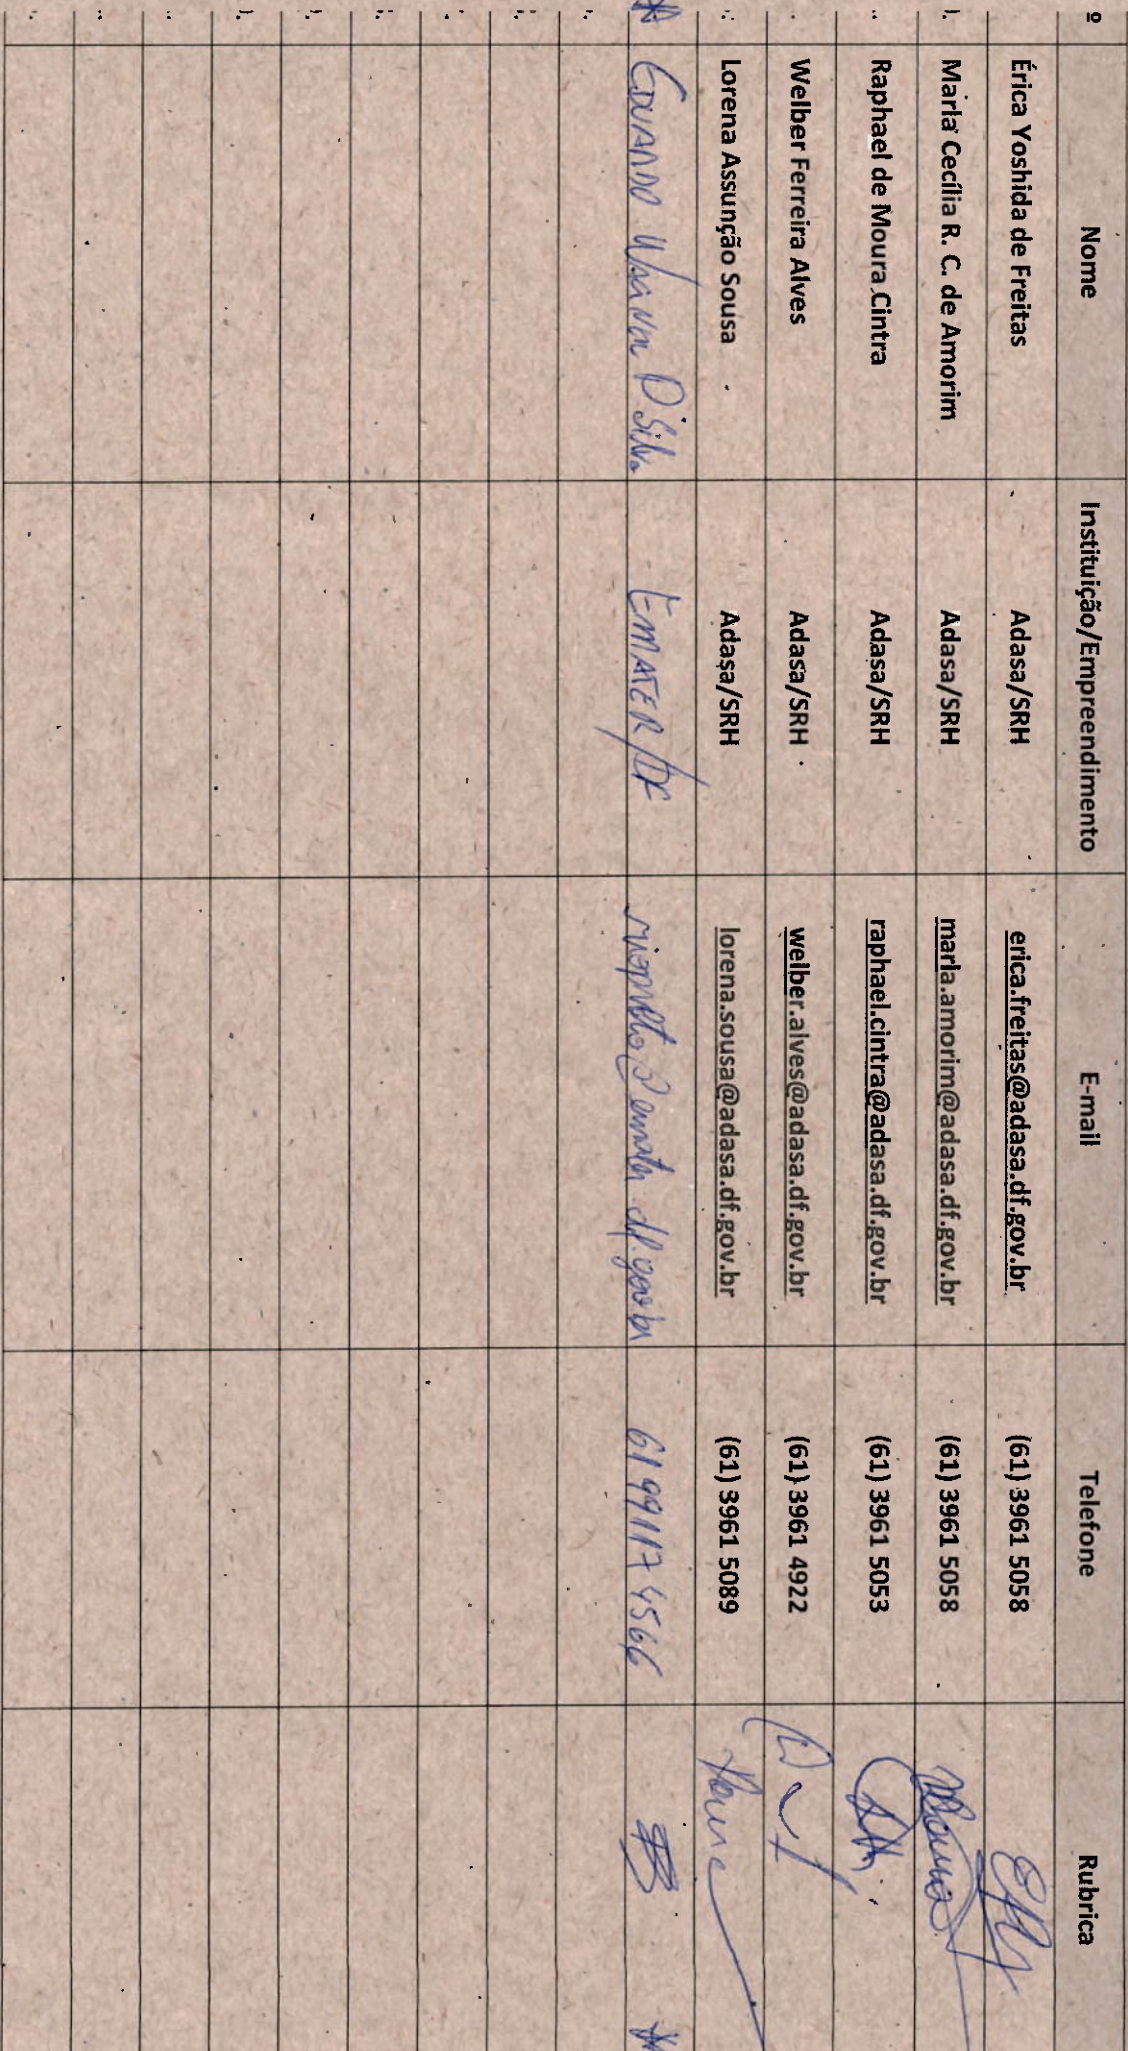 º Nome Instituição/Empreendimento E-mail Telefone Rubrica
Érica Yoshida de Freitas Adasa/SRH erica.freitas@adasa.df.gov.br (61) 3961 5058
Marla Cecília R. C. de Amorim Adasa/SRH marla.amorim@adasa.df.gov.br (61) 3961 5058
Raphael de Moura Cintra Adasa/SRH raphael.cintra@adasa.df.gov.br (61) 3961 5053
Welber Ferreira Alves Adasa/SRH welber.alves@adasa.df.gov.br (61) 3961 4922
Lorena Assunção Sousa Adasa/SRH lorena.sousa@adasa.df.gov.br (61) 3961 5089
EDUARDO D Silva EMATER/DF 61 99117 4566